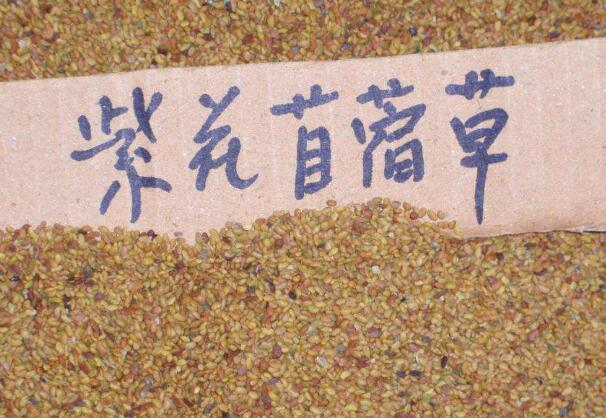 紫花苜蓿草